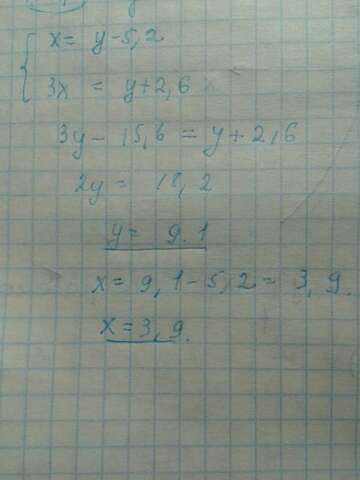 x = y - 5,2
3x = y + 2,6
3y - 15,6 = y + 2,6
2y = 18,2
y = 9.1
x = 9,1 - 5,2 = 3,9.
x = 3,9.